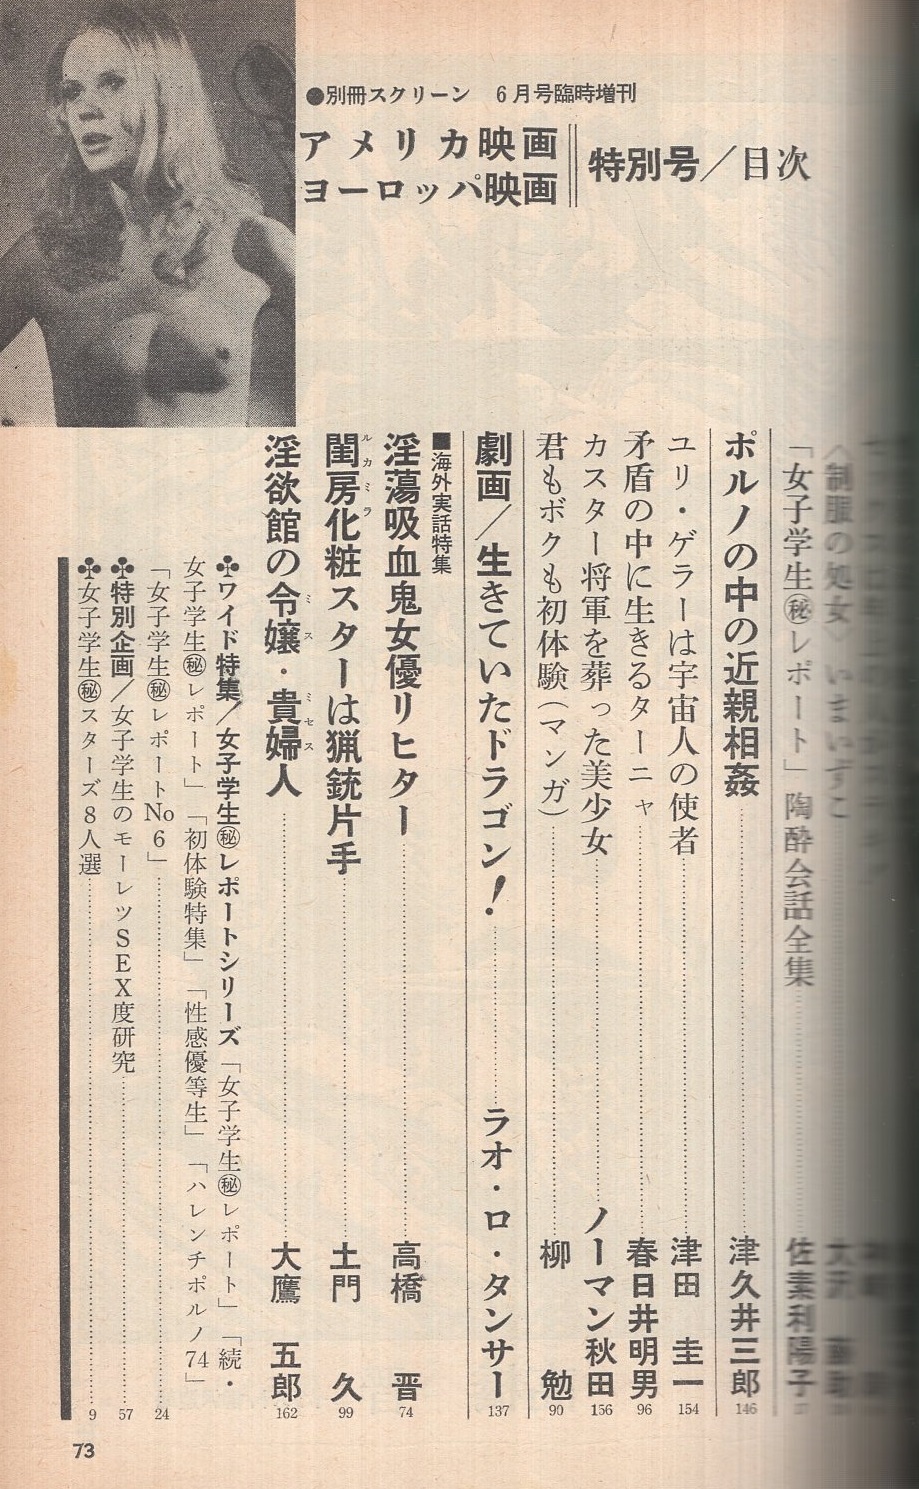 ●別冊スクリーン 6月号臨時増刊
アメリカ映画
ヨーロッパ映画
特別号／目次
「女子学生㊙レポート」陶酔会話全集 佐素利陽子
ポルノの中の近親相姦 津久井三郎 146
ユリ・ゲラーは宇宙人の使者 津田圭一 154
矛盾の中に生きるターニャ 春日井明男 96
カスター将軍を葬った美少女 ノーマン秋田 156
君もボクも初体験(マンガ) 柳勉 90
劇画／生きていたドラゴン! ラオ・ロ・タンサー 137
■海外実話特集
淫蕩吸血鬼女優リヒター 高橋晋 74
閨房化粧スターは猟銃片手 土門久 99
ルカミラ
淫欲館の令嬢・貴婦人 大鷹五郎 162
ミス ミセス
♣ワイド特集／女子学生㊙レポートシリーズ「女子学生㊙レポート」「続・
女子学生㊙レポート」「初体験特集」「性感優等生」「ハレンチポルノ74」
「女子学生㊙レポートNo6」 24
♣特別企画／女子学生のモーレツSEX度研究 57
♣女子学生㊙スターズ8人選 9
73